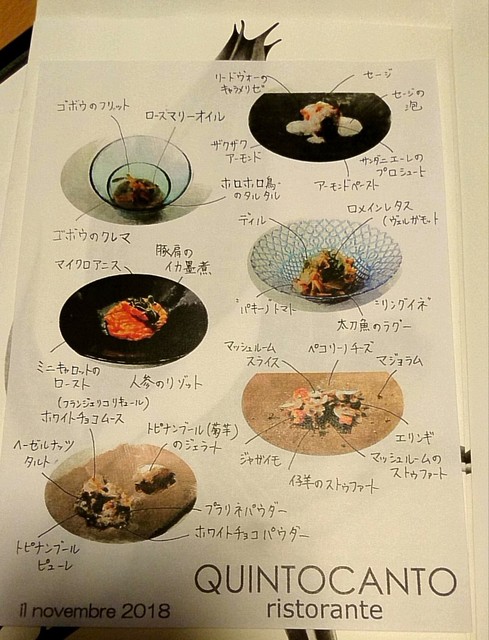 リードヴォーの
キャラメリゼ
セージ
セージの
泡
ザクザク
アーモンド
アーモンドペースト
サンダニエーレの
プロシュート
ゴボウのフリット
ローズマリーオイル
ホロホロ鳥
のタルタル
ゴボウのクレマ
ディル
ロメインレタス
(ヴェルガモット
パキーノトマト
リングイネ
太刀魚のラグー
マイクロアニス
豚肩の
イカ墨煮
ミニキャロットの
ロースト
人参のリゾット
マッシュルーム
スライス
ペコリーノチーズ
マジョラム
ジャガイモ
仔羊のストゥファート
エリンギ
マッシュルームの
ストゥファート
(フランジェリコリキュール)
ホワイトチョコムース
ヘーゼルナッツ
タルト
トピナンブール(菊芋)
のジェラート
プラリネパウダー
ホワイトチョコパウダー
トピナンブール
ピューレ
QUINTOCANTO
ristorante
il novembre 2018